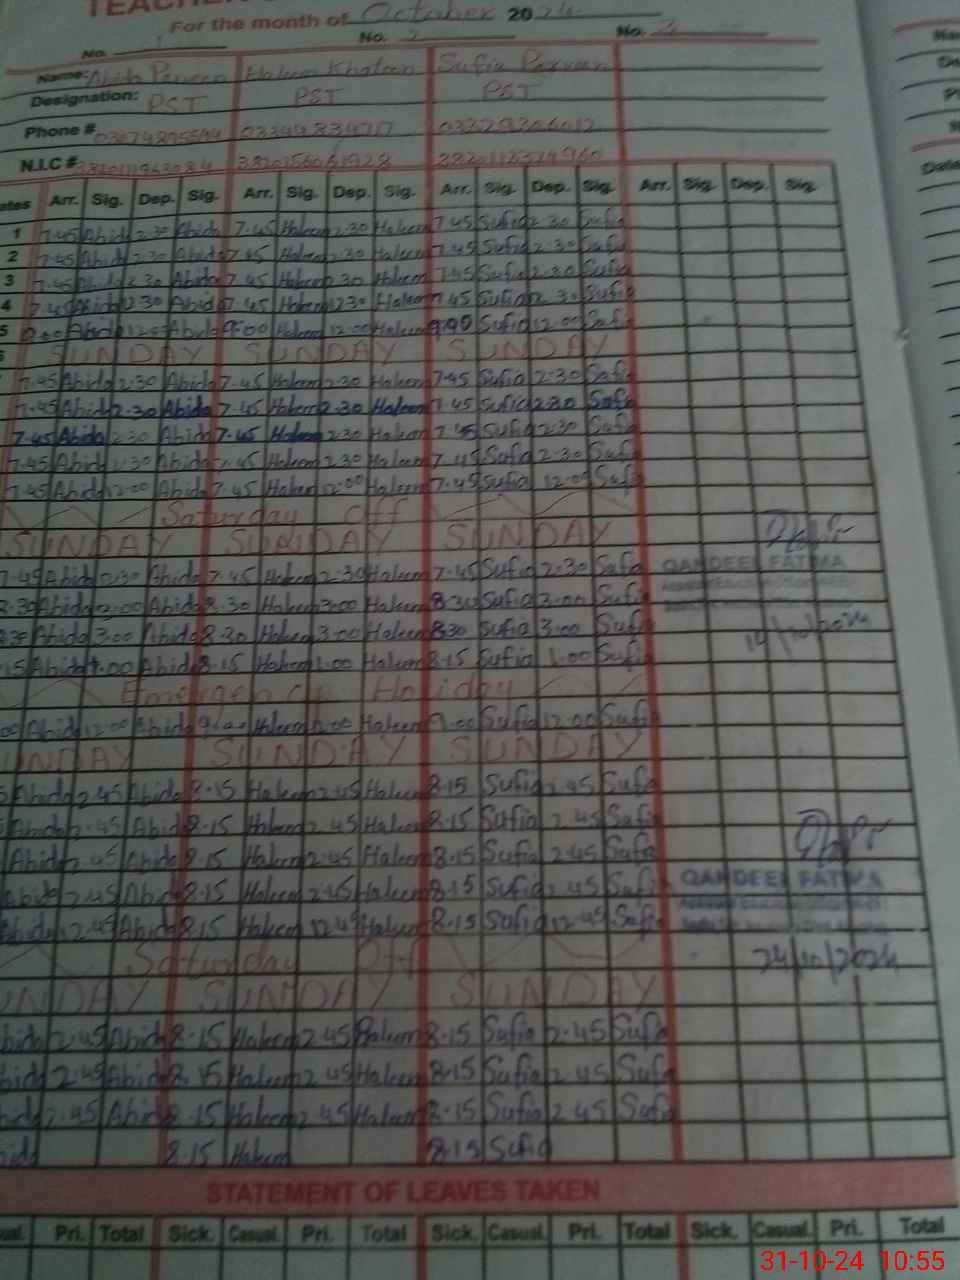 TEACHER
For the month of October 2024
No. 1 No. 2 No. 3
Name: Abida Parveen Haleem Khatoon Sufia Parveen
Designation: PST PST PST
Phone #
N.I.C #
ates Arr. Sig. Dep. Sig. Arr. Sig. Dep. Sig. Arr. Sig. Dep. Sig. Arr. Sig. Dep. Sig.
1 7.45 Abida 2.30 Abida 7.45 Haleem 2.30 Haleem 7.45 Sufia 2.30 Sufia
2 7.45 Abida 2.30 Abida 7.45 Haleem 2.30 Haleem 7.45 Sufia 2.30 Sufia
3 7.45 Abida 2.30 Abida 7.45 Haleem 2.30 Haleem 7.45 Sufia 2.30 Sufia
4 7.45 Abida 2.30 Abida 7.45 Haleem 2.30 Haleem 7.45 Sufia 2.30 Sufia
5 9.00 Abida 12.00 Abida 9.00 Haleem 12.00 Haleem 9.00 Sufia 12.00 Sufia
SUNDAY SUNDAY SUNDAY
7.45 Abida 2.30 Abida 7.45 Haleem 2.30 Haleem 7.45 Sufia 2.30 Sufia
7.45 Abida 2.30 Abida 7.45 Haleem 2.30 Haleem 7.45 Sufia 2.30 Sufia
7.45 Abida 2.30 Abida 7.45 Haleem 2.30 Haleem 7.45 Sufia 2.30 Sufia
7.45 Abida 2.30 Abida 7.45 Haleem 2.30 Haleem 7.45 Sufia 2.30 Sufia
7.45 Abida 12.00 Abida 7.45 Haleem 12.00 Haleem 7.45 Sufia 12.00 Sufia
Saturday Off
SUNDAY SUNDAY SUNDAY
7.45 Abida 2.30 Abida 7.45 Haleem 2.30 Haleem 7.45 Sufia 2.30 Sufia QANDEEL FATIMA
8.30 Abida 3.00 Abida 8.30 Haleem 3.00 Haleem 8.30 Sufia 3.00 Sufia
8.30 Abida 3.00 Abida 8.30 Haleem 3.00 Haleem 8.30 Sufia 3.00 Sufia 14/10/2024
15 Abida 1.00 Abida 8.15 Haleem 1.00 Haleem 8.15 Sufia 1.00 Sufia
Emergency Holiday
00 Abida 12.00 Abida 9.00 Haleem 12.00 Haleem 9.00 Sufia 12.00 Sufia
UNDAY SUNDAY SUNDAY
5 Abida 2.45 Abida 8.15 Haleem 2.45 Haleem 8.15 Sufia 2.45 Sufia
Abida 2.45 Abida 8.15 Haleem 2.45 Haleem 8.15 Sufia 2.45 Sufia
Abida 2.45 Abida 8.15 Haleem 2.45 Haleem 8.15 Sufia 2.45 Sufia
Abida 2.45 Abida 8.15 Haleem 2.45 Haleem 8.15 Sufia 2.45 Sufia QANDEEL FATIMA
Abida 12.45 Abida 8.15 Haleem 12.45 Haleem 8.15 Sufia 12.45 Sufia
Saturday Off 24/10/2024
UNDAY SUNDAY SUNDAY
bida 2.45 Abida 8.15 Haleem 2.45 Haleem 8.15 Sufia 2.45 Sufia
bida 2.45 Abida 8.15 Haleem 2.45 Haleem 8.15 Sufia 2.45 Sufia
bida 2.45 Abida 8.15 Haleem 2.45 Haleem 8.15 Sufia 2.45 Sufia
bida 8.15 Haleem 8.15 Sufia
STATEMENT OF LEAVES TAKEN
ual. Pri. Total Sick. Casual. Pri. Total Sick. Casual. Pri. Total Sick. Casual. Pri. Total
31-10-24 10:55